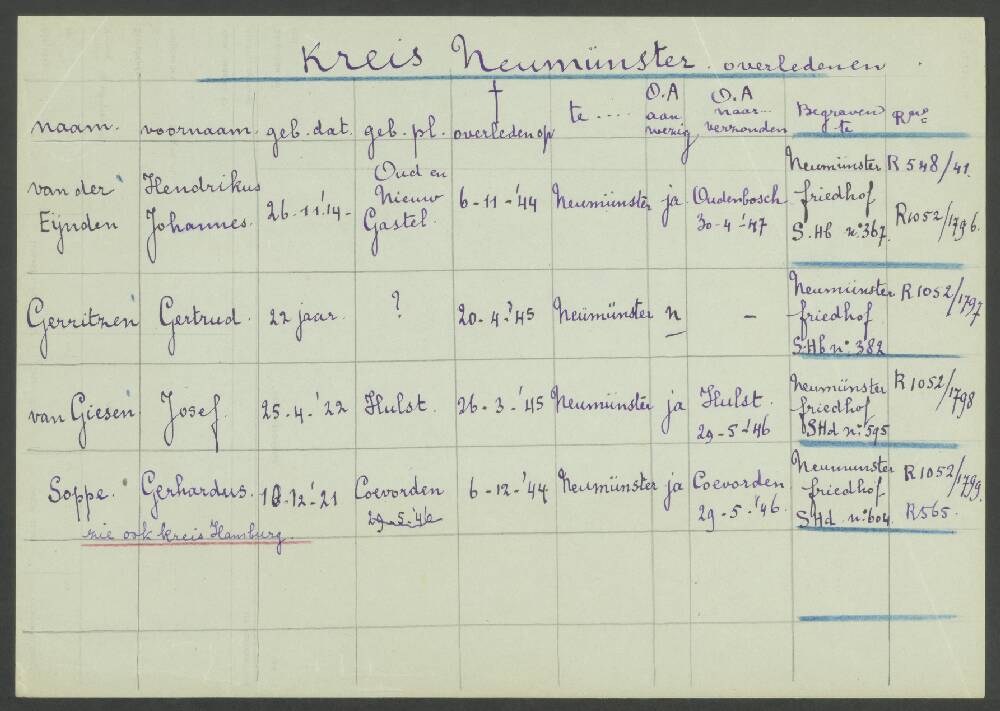 Kreis Neumünster. overledenen
naam. voornaam. geb. dat. geb. pl. † overleden op te .... O.A aan wezig O.A naar verzonden Begraven te R no
van der Eijnden Hendrikus Johannes. 26-11-'14- Oud en Nieuw Gastel. 6-11-'44 Neumünster ja Oudenbosch 30-4-'47 Neumünster friedhof S.Hb no 367. R 548/41. R1052/1796.
Gerritzen Gertrud. 22 jaar. ? 20-4-'45 Neumünster n - Neumünster friedhof S.Hb no. 382 R1052/1797
van Giesen Josef. 25-4-'22 Hulst. 26-3-'45 Neumünster ja Hulst. 29-5-'46 Neumünster friedhof SHd no. 595 R1052/1798
Soppe. Gerhardus. 12-'21 Coevorden 29-5-'46 6-12-'44 Neumünster ja Coevorden 29-5-'46. Neumunster friedhof SHd no. 604. R1052/1799. R565.
zie ook kreis Hamburg.